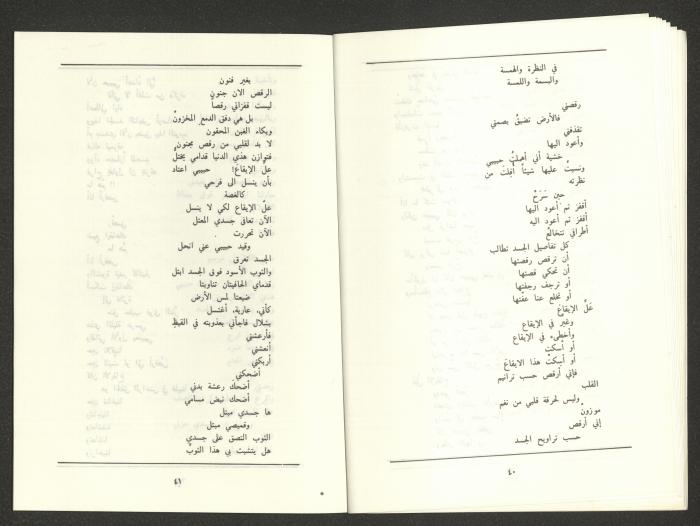 في النظرة والهمسة
والبسمة واللمسة
رقصتي
فالأرض تضيقُ بصمتي
تقذفني
وأعود اليها
خشية أني أهملتُ حبيبي
ونسيتُ عليها شيئاً أفلتَ من
نظرته
حين سَرَحْ
أقفز ثم أعود اليها
أقفز ثم أعود اليه
أطرافي تتخالعُ
كل تفاصيل الجسد تطالب
أن ترقص رقصتها
أن تحكي قصتها
أو ترجف رجفتها
أو تخلع عنا عفتها
عَلِّ الإيقاعَ
وغيّر في الإيقاع
وأخطىء في الإيقاع
أو أسكت
أو أسكتْ هذا الايقاعَ
فإني أرقص حسب ترانيم
القلب
وليس لحرقة قلبي من نغم
موزونْ
إني أرقص
حسب تراويح الجسد
٤٠
بغير فنون
الرقص الان جنون
ليست قفزاتي رقصاً
بل هي دفق الدمع المخزونْ
وبكاء الغبن المحقون
لا بد لقلبي من رقص مجنون
فتوازن هذي الدنيا قدامي يختلّ
علِّ الإيقاعَ! حبيبي اعتاد
بأن ينسل الى فرحي
كالغصة
علِّ الإيقاع لكي لا ينسل
الآن تعافى جسدي المعتل
الآن تحررت
وقيد حبيبي عني انحل
الجسد تعرق
والثوب الأسود فوق الجسد ابتل
قدماي الحافيتان تناوبتا
ضيعتا لمس الأرض
كأني، عارية، أغتسل
بشلال فاجأني بعذوبته في القيظِ
فأرعشني
أنعشني
أربكني
أضحكني
أضحكَ رعشة بدني
أضحك نبض مسامي
ها جسدي مبتل
وقميصي مبتل
الثوب التصق على جسدي
هل يتشبث بي هذا الثوبُ
٤١